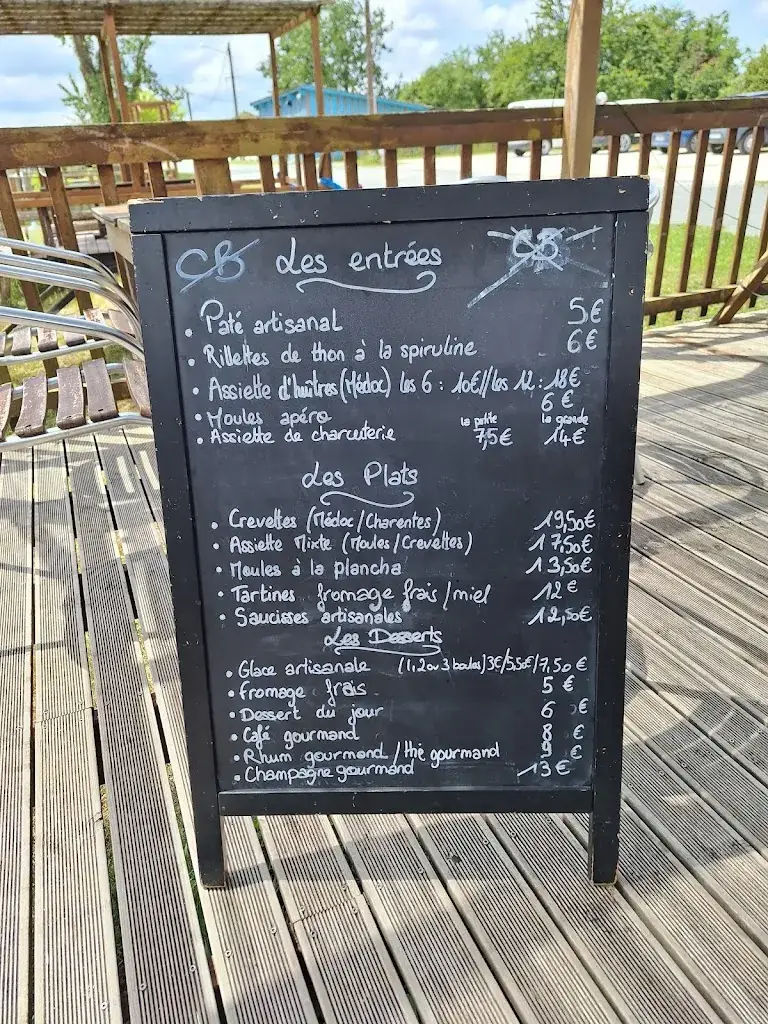 CB Les entrées CB
• Paté artisanal 5€
• Rillettes de thon à la spiruline 6€
• Assiette d'huîtres (Médoc) les 6 : 10€// les 12 : 18€
• Moules apéro 6 €
la petite la grande
• Assiette de charcuterie 7,5€ 14€
Les Plats
• Crevettes (Médoc/Charentes) 19,50€
• Assiette Mixte (Moules/Crevettes) 17,50€
• Moules à la plancha 13,50€
• Tartines fromage frais/miel 12€
• Saucisses artisanales 12,50€
Les Desserts
• Glace artisanale (1,2 ou 3 boules) 3€/5,50€/7,50 €
• Fromage frais 5 €
• Dessert du jour 6 €
• Café gourmand 8 €
• Rhum gourmand / thé gourmand 9 €
• Champagne gourmand 13€